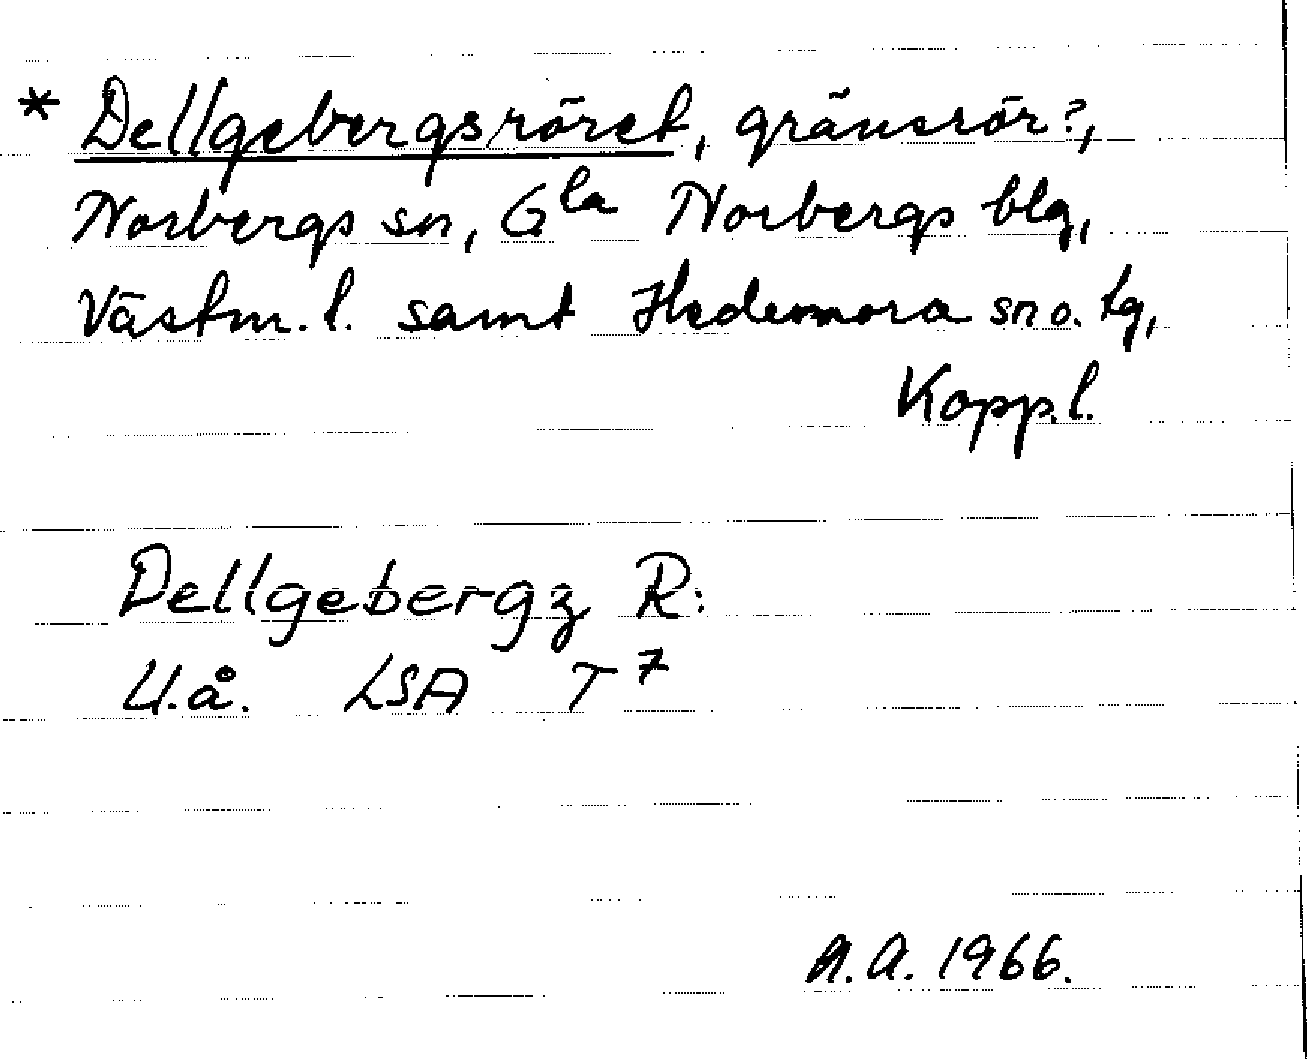 * Dellgebergsröret, gränsrör?,
Norbergs sn, Gla Norbergs blg,
Västm. l. samt Hedemora sn o. tg,
Kopp. l.
Dellgebergz R:
U.å. LSA T 7
A.A. 1966.